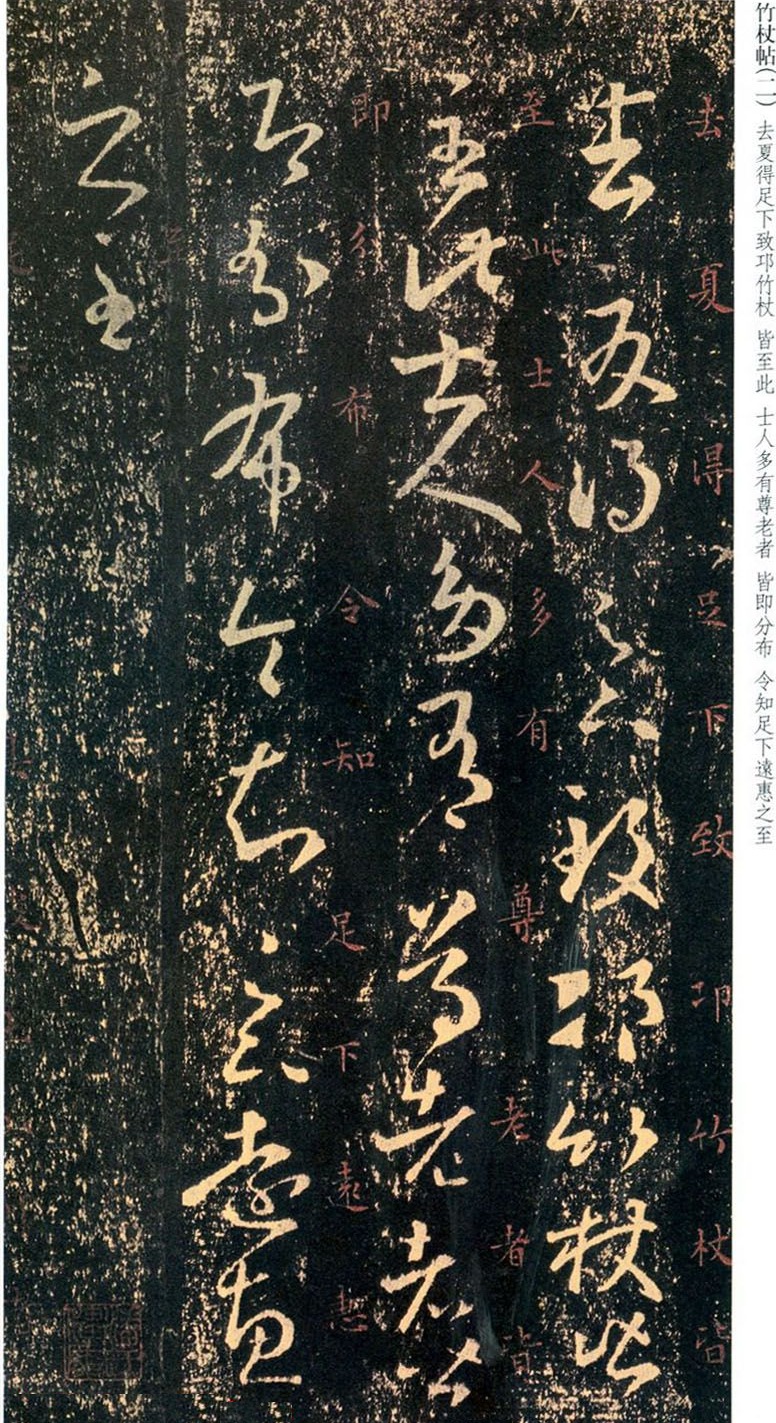 竹杖帖(二) 去夏得足下致邛竹杖 皆至此 士人多有尊老者 皆即分布 令知足下遠惠之至
去夏得足下致邛竹杖皆
去夏得足下致邛竹杖皆
至此士人多有尊老者皆
至此士人多有尊老者皆
即分布令知足下遠惠
即分布令知足下遠惠
之至